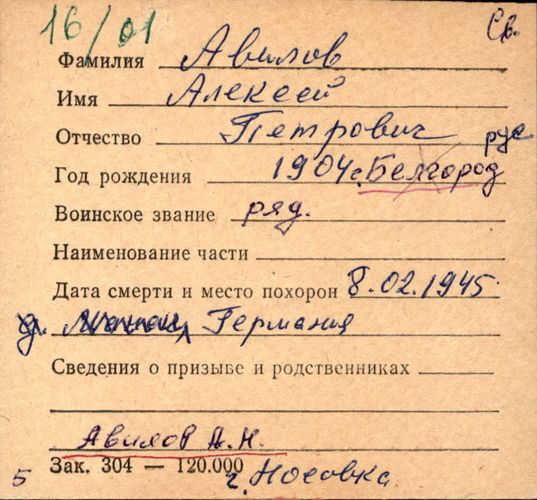 16/01 Св.
Фамилия Авилов
Имя Алексей
Отчество Петрович рус
Год рождения 1904 г. Белгород
Воинское звание ряд.
Наименование части
Дата смерти и место похорон 8.02.1945
д. Германия
Сведения о призыве и родственниках
Авилов А.Н.
Зак. 304 — 120.000
5 г. Носовка